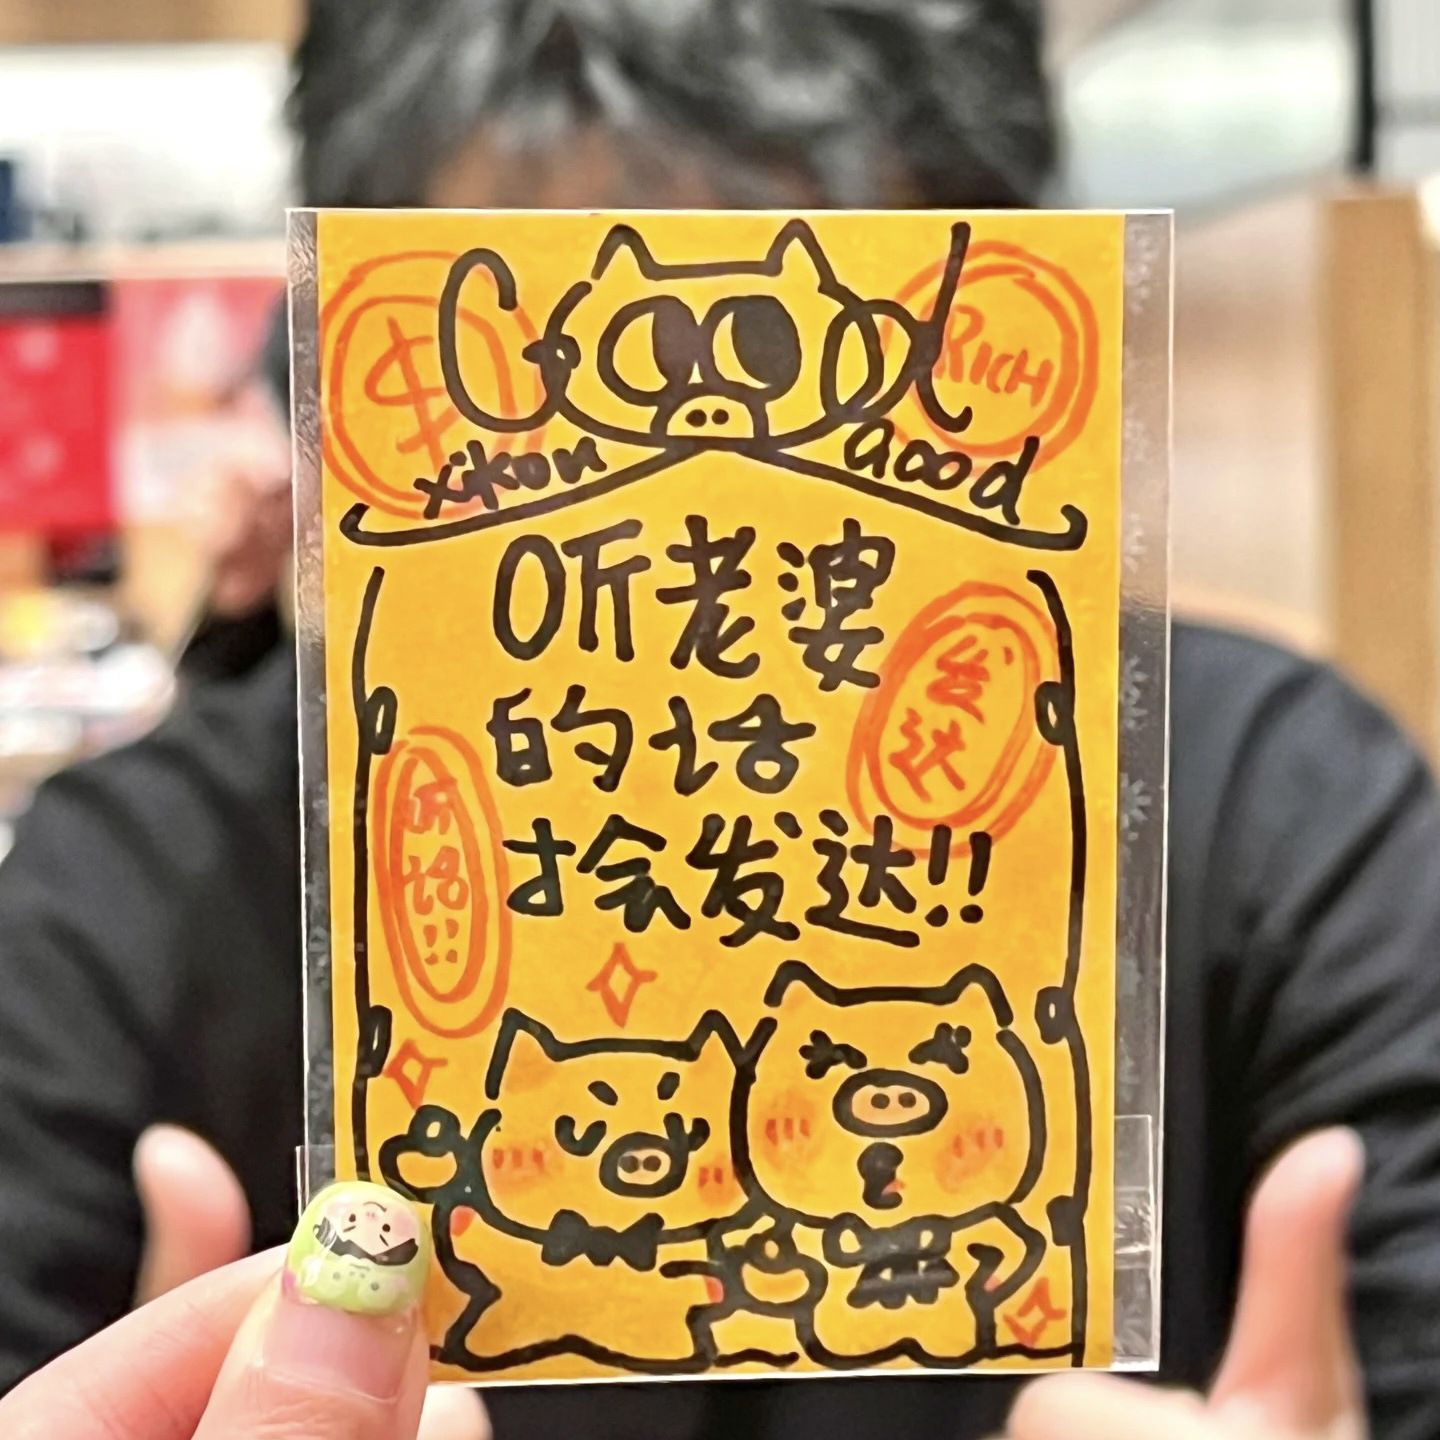 Good
$
RICH
xikon
Good
听老婆
的话
才会发达!!
发达
听话!!